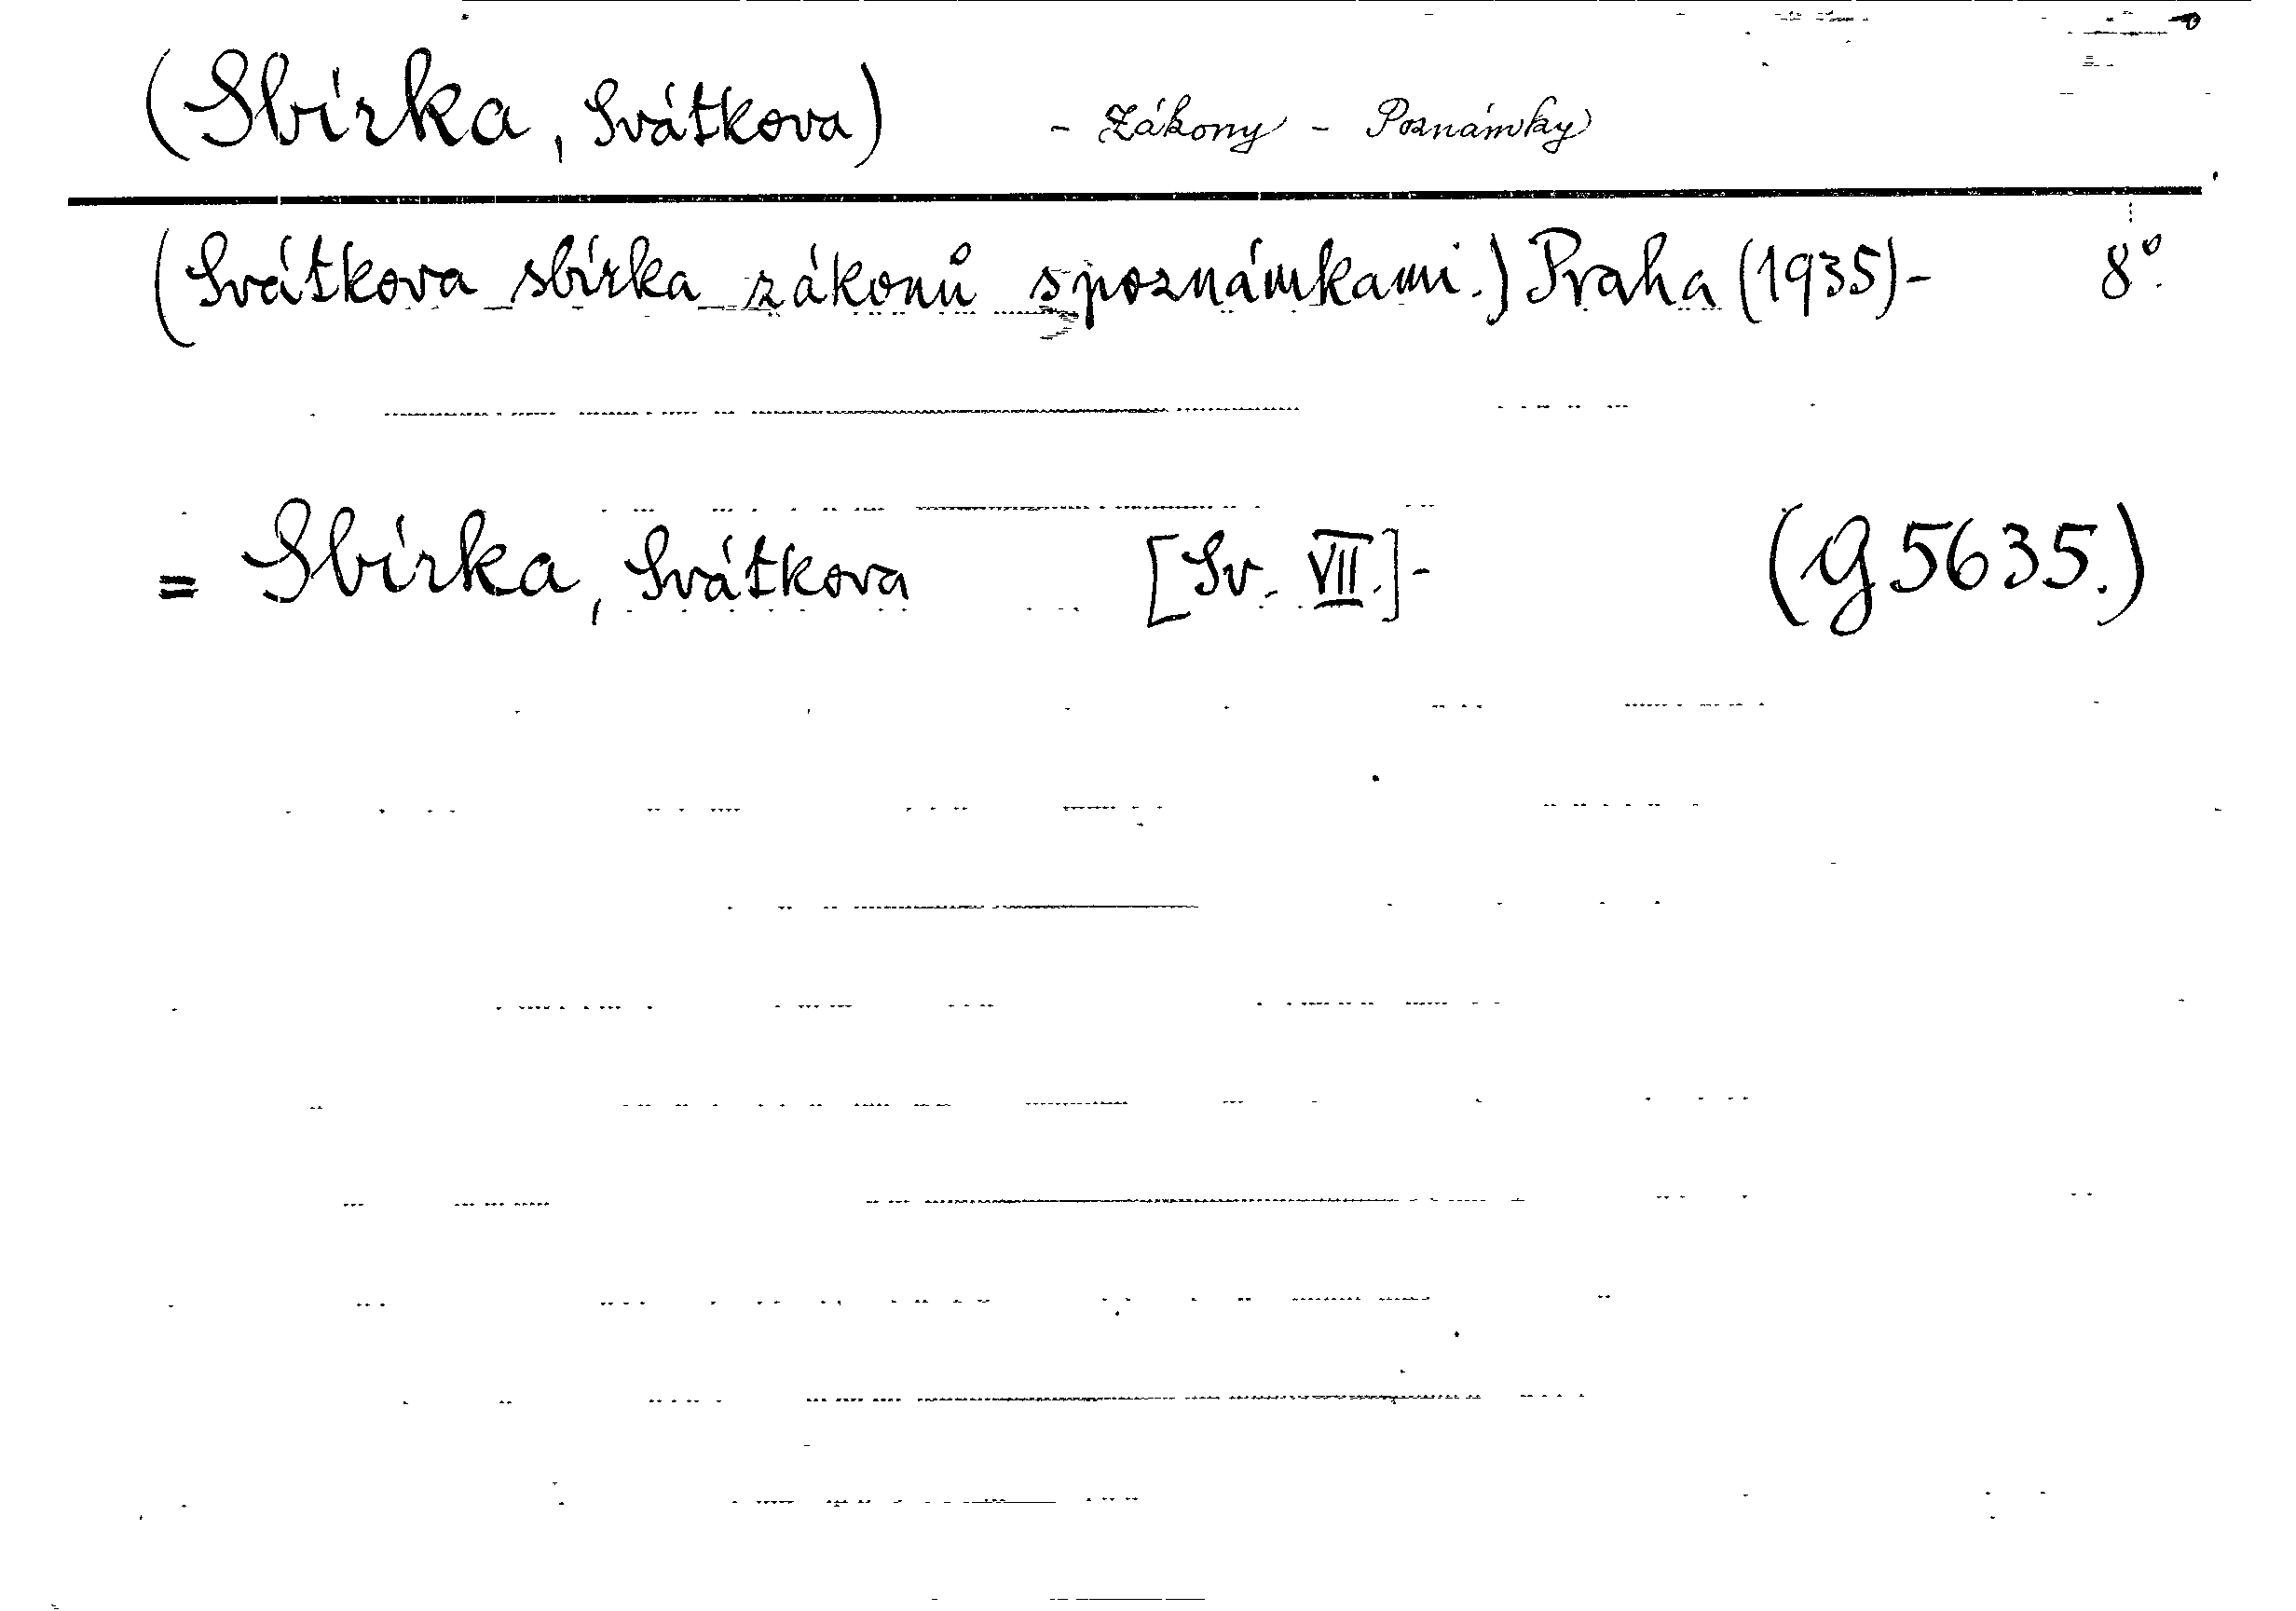 (Sbírka, Svátkova) - Zákony - Poznámky
(Svátkova sbírka zákonů s poznámkami.) Praha (1935)- 8°.
= Sbírka, Svátkova [Sv. VII.]- (G 5635.)